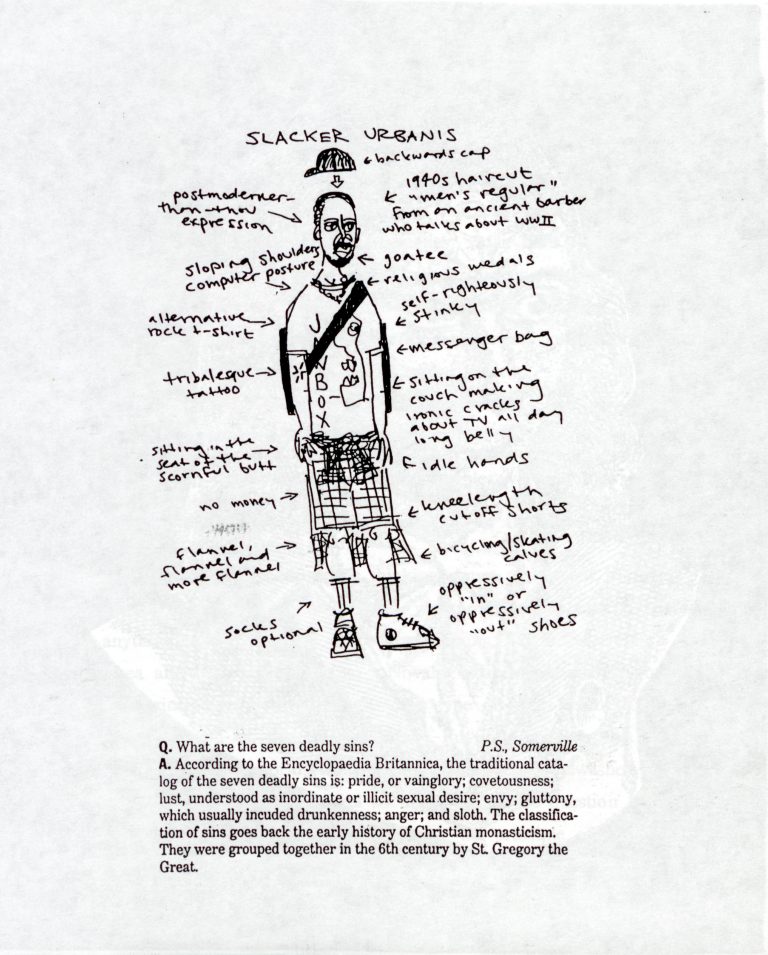 SLACKER URBANIS
backwards cap
postmoderner-
than-thou
expression
1940s haircut
"men's regular"
from an ancient barber
who talks about WWII
sloping shoulders
computer posture
goatee
religious medals
self-righteously
stinky
alternative
rock t-shirt
messenger bag
tribalesque
tattoo
JAWBOX
sitting on the
couch making
ironic cracks
about TV all day
long belly
sitting in the
seat of the
scornful butt
idle hands
no money
kneelength
cutoff shorts
flannel,
flannel and
more flannel
bicycling/skating
calves
socks
optional
oppressively
"in" or
oppressively
"out" shoes
Q. What are the seven deadly sins? P.S., Somerville
A. According to the Encyclopaedia Britannica, the traditional cata-
log of the seven deadly sins is: pride, or vainglory; covetousness;
lust, understood as inordinate or illicit sexual desire; envy; gluttony,
which usually incuded drunkenness; anger; and sloth. The classifica-
tion of sins goes back the early history of Christian monasticism.
They were grouped together in the 6th century by St. Gregory the
Great.